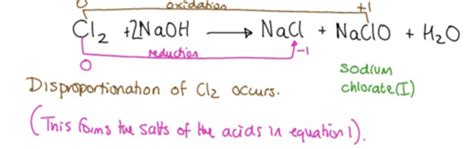 0 oxidation +1
Cl₂ + 2NaOH → NaCl + NaClO + H₂O
0 reduction -1
sodium
chlorate(I)
Disproportionation of Cl₂ occurs.
(This forms the salts of the acids in equation 1).